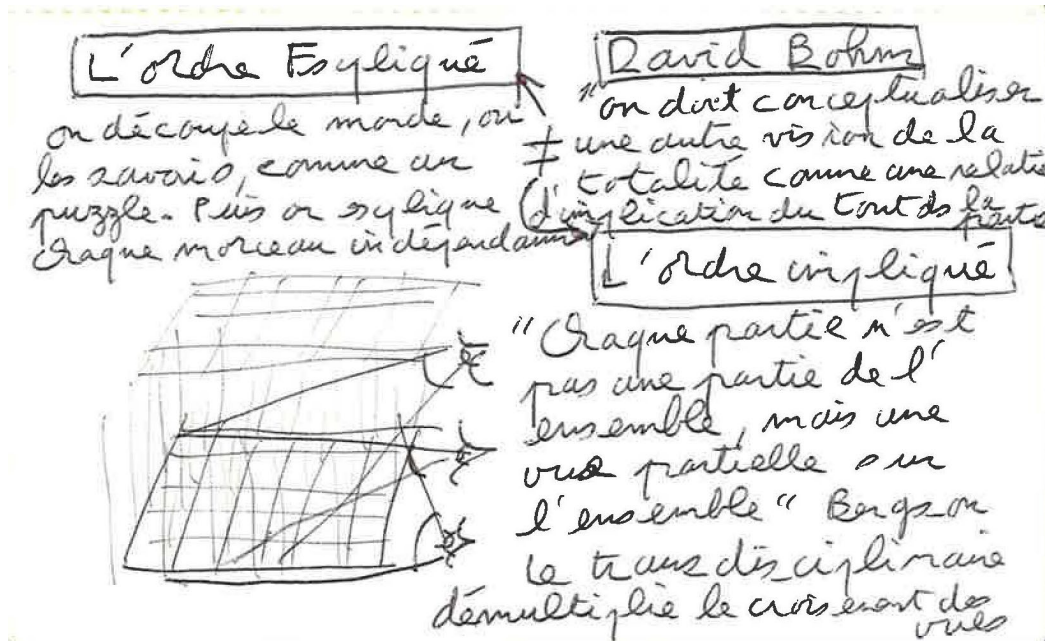 L'ordre Expliqué
on découpe le monde, ou
les savoirs, comme un
puzzle. Puis on explique
chaque morceau indépendamm
David Bohm
"on doit conceptualiser
≠ une autre vision de la
totalité comme une relatio
d'implication du Tout ds la
partie
L'ordre impliqué
"Chaque partie n'est
pas une partie de l'
ensemble, mais une
vue partielle sur
l'ensemble" Bergson
Le transdisciplinaire
démultiplie le croisement des
vues